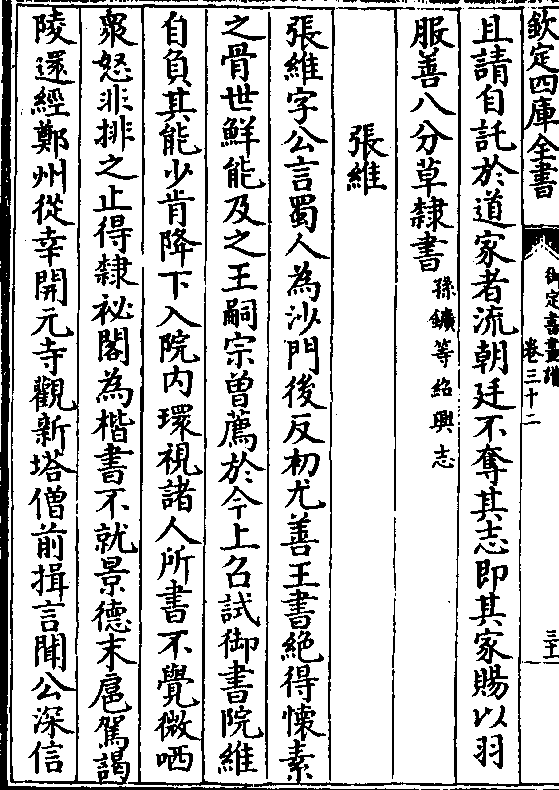 欽定四庫全書
御定書畫譜
卷三十二
三十二
且請自託於道家者流朝廷不奪其志即其家賜以羽
服善八分草隸書孫鑛等紹興志
張維
張維字公言蜀人為沙門後反初尤善王書絶得懷素
之骨世鮮能及之王嗣宗曾薦於今上召試御書院維
自負其能少肯降下入院内環視諸人所書不覺微哂
衆怒非排之止得隸祕閣為楷書不就景德末扈駕謁
陵還經鄭州從幸開元寺觀新塔僧前揖言聞公深信